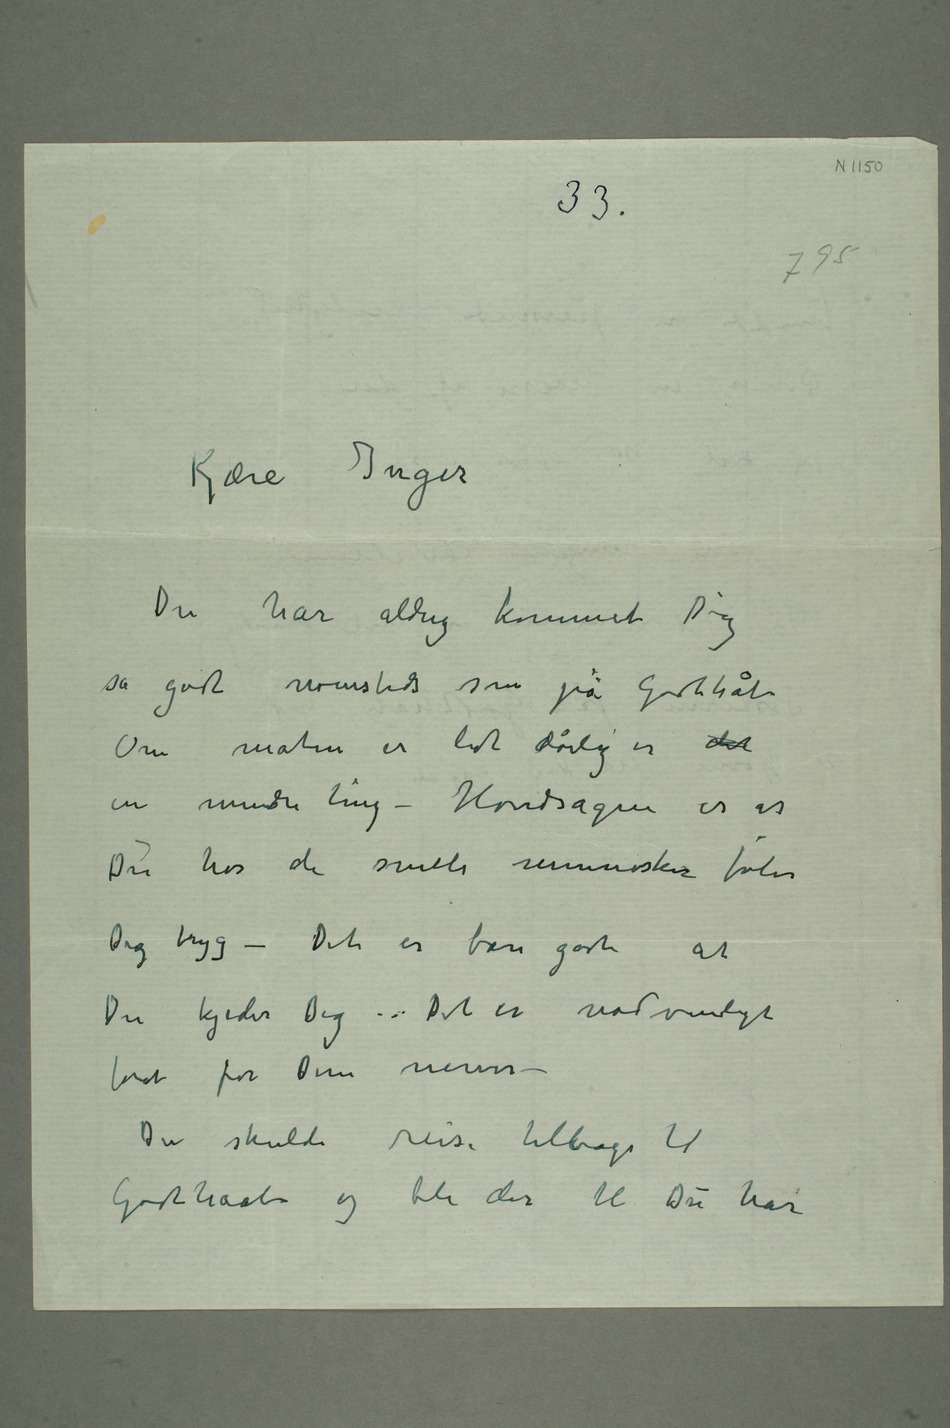 N 1150
33.
795
Kjære Inger
Du har aldrig kommet Dig
så godt nonsteds som på Godthåb
Om maten er lidt dårlig er det
en mindre ting – Hovedsagen er at
Du hos de snille mennesker føler
Dig tryg – Det er bare godt at
Du kjeder Dig … Det er nødvendigt
for Dine nerver –
Du skulde reise tilbage til
Godthaab og bli der til Du har